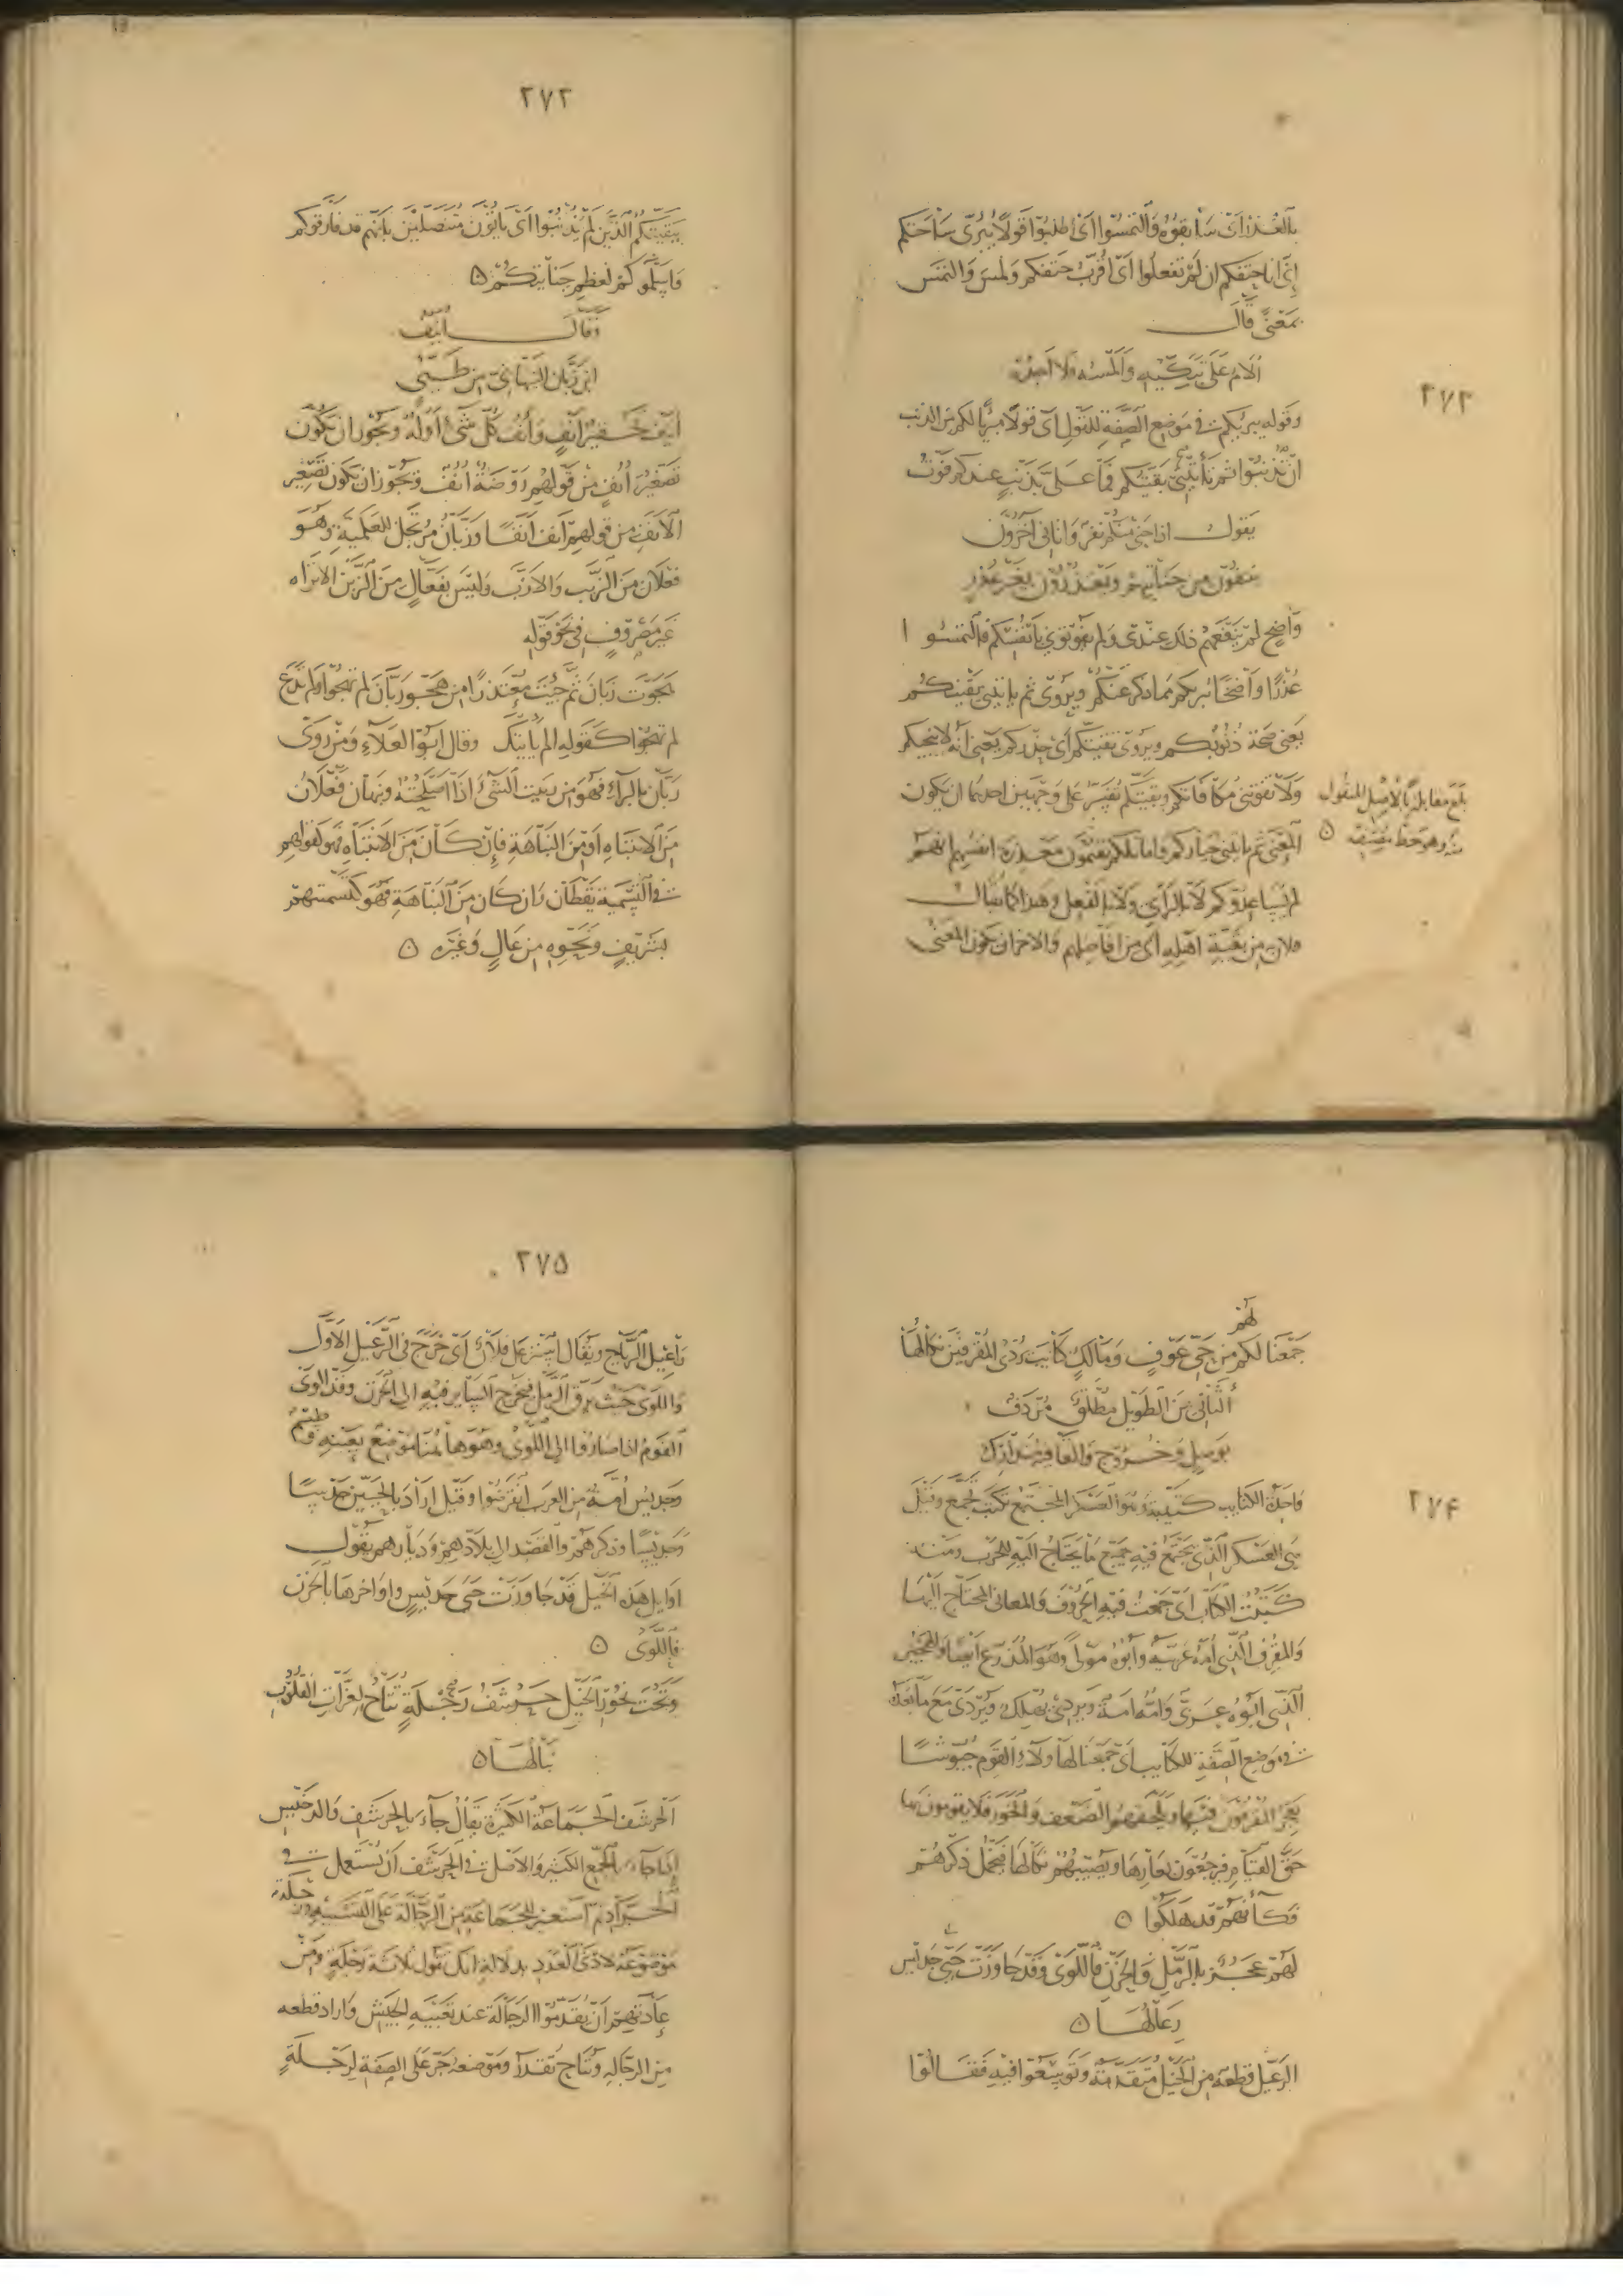 ٢٧٢
بالعذر اي سابقوه والتمسوا اي اطلبوا قولا يبرى ساحتكم
اني انا حتفكم ان لم تفعلوا اي اقرب حتفكم ولمس والتمس
بمعنى قال
الام على تبكيه والمسه فلا اجده
وقوله يبريكم في موضع الصفة للقول اي قولا مبريا لكم من الذنب
ان تذنبوا ثم تاتيني بقيتكم فما علي بذنب عندكم فوت
يقول اذا جنى منكم نفر واتاني آخرون
ينتفون من جنايتهم ويعتذرون بغير عذر
واضح لم ينفعهم ذلك عندي ولم يفوتوني بانفسكم فالتمسوا
عذرا واضحا يبريكم مما ذكر عنكم ويروى ثم ياتيني يقينكم
يعني صحة ذنوبكم ويروى تقيتكم اي حذركم يعني انه لا ينجيكم
ولا تفوتني مكافاتكم وبقيتكم تفسر على وجهين احدهما ان يكون
المعنى ثم ياتيني خياركم واماثلكم يقيمون معذرة انفسهم انهم
لم يساعدوكم لا بالراي ولا بالفعل وهذا كما يقال
فلان من بقية اهله اي من افاضلهم والاخر ان يكون المعنى
٢٧٣
بلغ مقابلة بالاصل المنقول
منه وهو خط مصنفه
بقيتكم الذين لم يذنبوا اي ياتون متنصلين بانهم قد فارقوكم
واسلموكم لعظم جنايتكم
وقال انيف
ابن زبان النبهاني من طيئ
انيف تحقير انف وانف كل شيء اوله ويجوز ان يكون
تصغير انف من قولهم روضة انف ويجوز ان يكون تصغير
الانف من قولهم انف انفا وزبان مرتجل للعلمية وهو
فعلان من الزبب والازب وليس بفعال من الزبن الا تراه
غير مصروف في نحو قوله
هجوت زبان ثم جئت معتذرا من هجو زبان لم تهجوا ولم تدع
لم تهجوا كقوله الم ياتيك وقال ابو العلاء ومن روى
ربان بالراء فهو من ربيت الشيء اذا اصلحته ونبهان فعلان
من الانتباه او من النباهة فان كان من الانتباه فهو كقولهم
في التسمية يقظان وان كان من النباهة فهو كتسميتهم
بشريف ونحوه من عال وغيره
لهم
جمعنا لكم من حي عوف ومالك كتايب يردي المقرفين نكالها
الثاني من الطويل مطلق مردف
بوصل وخروج والقافية متدارك
واحدة الكتايب كتيبة وهو العسكر المجتمع تكتب تجمع وقيل
هي العسكر الذي يجتمع فيه جميع ما يحتاج اليه للحرب ومنه
كتبت الكتاب اي جمعت فيه الحروف والمعاني المحتاج اليها
والمقرف الذي امه عربية وابوه مولى وهو المذرع ايضا والهجين
الذي ابوه عربي وامه امة ويردي يهلك ويردي مع ما بعده
في موضع الصفة للكتايب اي جمعنا لهاولاء القوم جيوشا
يعجز المقرفون فيها ويلحقهم الضعف والخور فلا يقومون بها
حق القيام فيرجعون بعارها ويصيبهم نكالها فيخمل ذكرهم
فكانهم قد هلكوا
لهم عجز بالرمل فالحزن فاللوى وقد جاوزت حيي جديس
رعالها
الرعيل قطعة من الخيل متقدمة وتوسعوا فيه فقالوا
٢٧٤
٢٧٥
راعيل الرياح ويقال استرعل فلان اي خرج في الرعيل الاول
واللوى حيث يرق الرمل فيخرج الساير فيه الى الحزن وقد الوى
القوم اذا صاروا الى اللوى وهو هاهنا موضع بعينه وطسم
وجديس امة من العرب انقرضوا وقيل اراد بالحيين جديسا
وجديسا وذكرهم والقصد الى بلادهم وديارهم يقول
اوايل هذه الخيل قد جاوزت حيي جديس واواخرها بالحزن
فاللوى
وتحت نحور الخيل حرشف رجلة تتاح لغرات القلوب
نبالها
الحرشف الجماعة الكثيرة يقال جاء بالحرشف والدخيس
اذا جاء بالجمع الكثير والاصل في الحرشف ان يستعمل في
الجراد ثم استعير للجماعة من الرجالة على التشبيه ورجلة
موضوعة لادنى العدد بدلالة انك تقول ثلاثة رجلة ومن
عادتهم ان يقدموا الرجالة عند تعبية الجيش واراد قطعه
من الرجالة وتتاح تقدر وموضعه جر على الصفة لرجلة